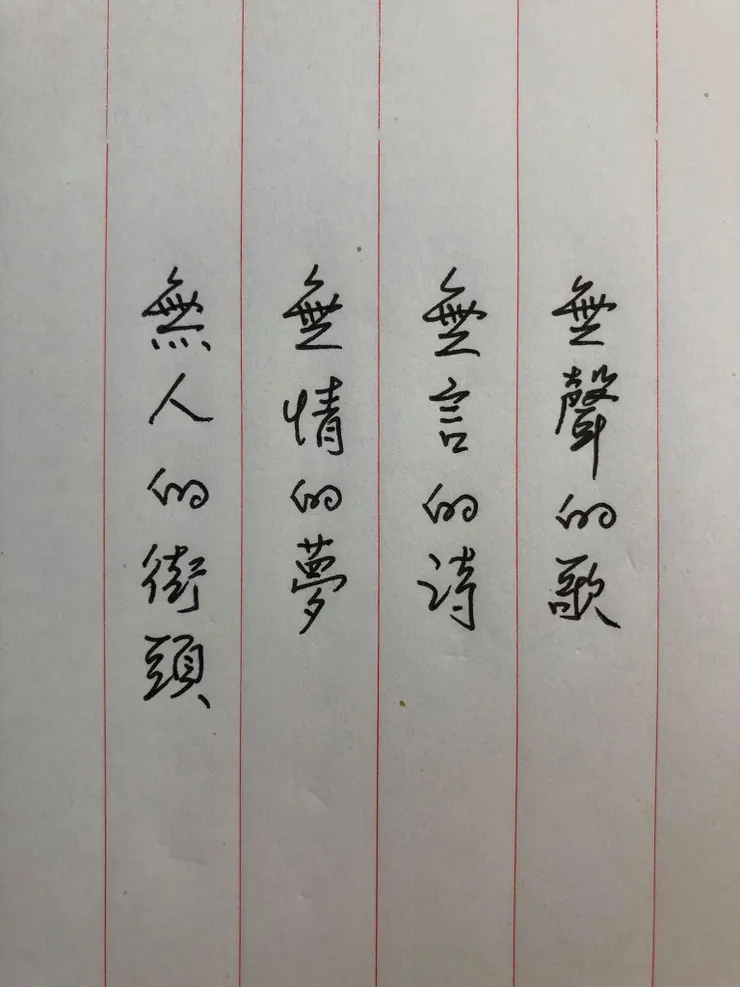 無聲的歌
無言的诗
無情的夢
無人的街頭